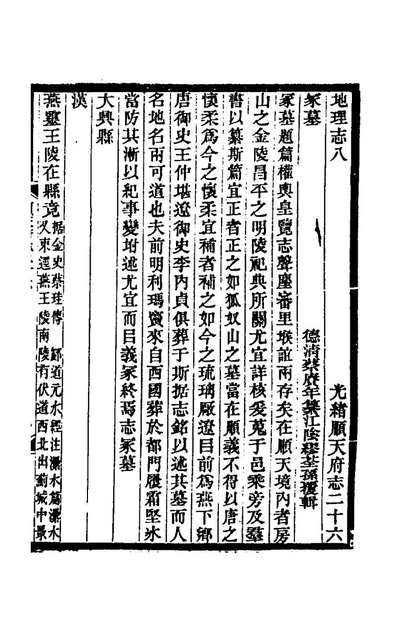 地理志八 光緒順天府志二十六
冢墓 德清蔡賡年纂江陰繆荃孫覆輯
冢墓題篇權輿皇覽志聲塗審里堠誼兩存矣在順天境內者房
山之金陵昌平之明陵祀典所關尤宜詳核爰蒐于邑乘旁及羣
書以纂斯篇宜正者正之如狐奴山之墓當在順義不得以唐之
懷柔爲今之懷柔宜補者補之如今之琉璃厰遼目前爲燕下鄉
唐御史王仲堪遼御史李內貞俱葬于斯据志銘以述其墓而人
名地名兩可道也夫前明利瑪竇來自西國葬於都門履霜堅冰
當防其漸以紀事變坿述尤宜而目義冢終焉志冢墓
大興縣
漢
燕靈王陵在縣竟据金史蔡珪傳 酈道元水經注㶟水篇㶟水
又東逕燕王陵南陵有伏道西北出薊城中景